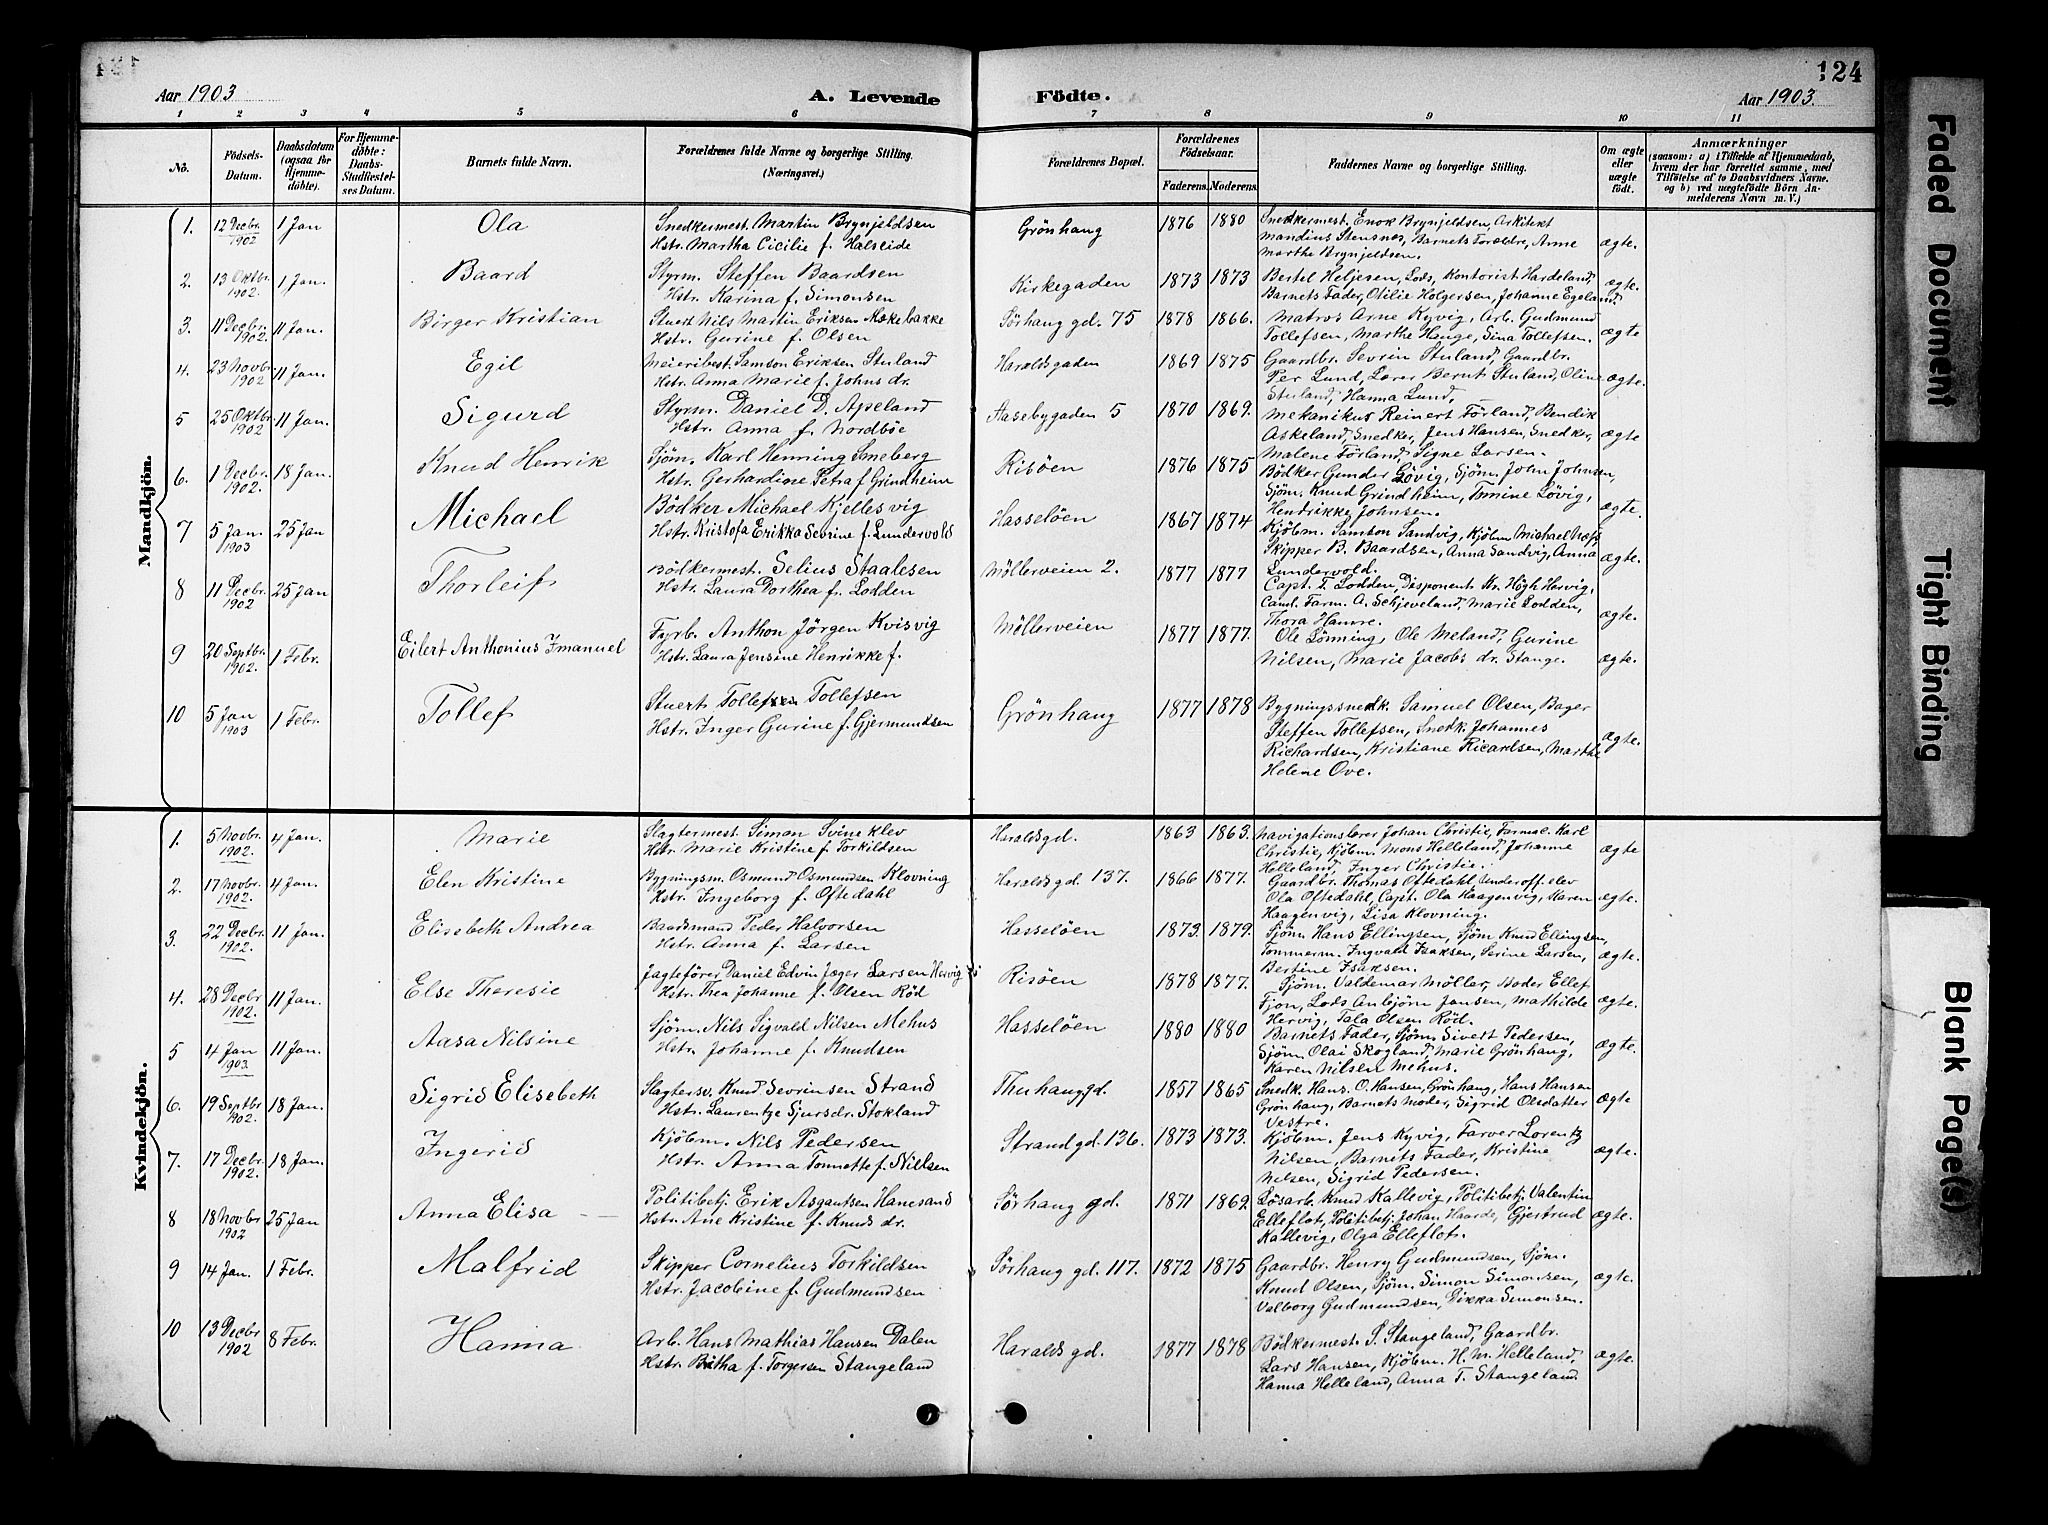 124
Aar 1903
A. Levende Födte.
Aar 1903.
1 2 3 4 5 6 7 8 9 10 11
No.
Födsels-Datum.
Daabsdatum (ogsaa for Hjemmedöbte).
For Hjemmedöbte: Daabs-Stadfæstelses Datum.
Barnets fulde Navn.
Forældrenes fulde Navne og borgerlige Stilling. (Næringsvei.)
Forældrenes Bopæl.
Forældrenes Födselsaar.
Faderens. Moderens.
Faddernes Navne og borgerlige Stilling.
Om ægte eller uægte födt.
Anmærkninger
(saasom: a) i Tilfælde af Hjemmedaab, hvem der har forrettet samme, med Tilföielse af to Daabsvidners Navne. og b) ved uægtefödte Börn Anmelderens Navn m. V.)
Mandkjön.
1. 12 Decbr. 1902 1 Jan Ola
Snedkermest. Martin Brynjeldsen
Hstr. Martha Cicilie f. Halseide
Grönhang 1876 1880
Snedkermest. Enok Brynjeldsen, Arkitekt
Mandius Stensnes, Barnets Forældre, Anne
Marthe Brynjeldsen.
ægte.
2. 13 Oktbr. 1902. 1 Jan. Baard
Styrm. Steffen Baardsen
Hstr. Karina f. Simonsen
Kirkegaden 1873 1873
Bertel Heljesen, Lods, Kontorist Hardeland,
Barnets Fader, Otilie Holgersen, Johanne Egeland.
ægte.
3. 11 Decbr. 1902. 11 Jan. Birger Kristian
Stuert Nils Martin Eriksen Mækebakke
Hstr. Gurine f. Olsen
Sörhang gd. 75 1878 1866.
Matros Arne Kyvig, Arb. Gudmund
Tollefsen, Marthe Hauge, Sina Tollefsen.
ægte
4. 23 Novbr. 1902 11 Jan. Egil
Meieribest. Samson Eriksen Stuland
Hstr. Anna Marie f. Johns dr.
Haraldsgaden 1869 1875
Gaardbr. Sevrin Stuland, Gaardbr.
Per Lund, Lærer Bernt Stuland, Oline
Stuland, Hanna Lund.
ægte.
5 25 Oktbr. 1902 11 Jan. Sigurd
Styrm. Daniel D. Apeland
Hstr. Anna f. Nordböe
Aasebygaden 5 1870 1869.
Mekanikus Reinert Förland, Bendik
Askeland, Snedker, Jens Hansen, Snedker,
Malene Förland, Signe Larsen.
ægte
6. 1 Decbr. 1902. 18 Jan. Knud Henrik
Sjöm. Karl Henning Smeberg
Hstr. Gerhardine Petra f Grindheim
Risöen 1876 1875
Bödker Gunder Lövig, Sjöm. John Johnsen,
Sjöm. Knud Grindheim, Tomine Lövig,
Hendrikke Johnsen.
ægte.
7 5 Jan. 1903 25 Jan Michael
Bödker Michael Kjellesvig
Hstr. Kristofa Erikka Sevrine f. Lundervold
Hasselöen 1867 1874
Kjöbm. Samson Sandvig, Kjöbm Michael Næss,
Skipper B. Baardsen, Anna Sandvig, Anna
Lundervold.
ægte.
8 11 Decbr. 1902. 25 Jan Thorleif
Bödkermest. Selius Staalesen
Hstr. Laura Dorthea f. Lodden
Möllerveien 2. 1877 1877
Capt. T. Lodden, Disponent Kr. Högh Hervig,
Cand. Farm. A. Schjeveland, Marie Lodden,
Thora Hamre.
ægte.
9 20 Septbr. 1902. 1 Febr. Eilert Anthonius Imanuel
Fyrb. Anthon Jörgen Kvisvig
Hstr. Laura Jensine Henrikke f.
Möllerveien 1877 1877.
Ole Lönning, Ole Meland, Gurine
Nilsen, Marie Jacobs dr. Stange.
ægte.
10 5 Jan 1903 1 Febr. Tollef
Stuert Tollef Tollefsen
Hstr. Inger Gurine f. Gjermundsen
Grönhang 1877 1878
Bygningssnedk. Samuel Olsen, Bager
Steffen Tollefsen, Snedk. Johannes
Richardsen, Kristiane Ricardsen, Marthe
Helene Ove.
ægte.
Kvindekjön.
1. 5 Novbr. 1902. 4 Jan. Marie
Slagtermest. Simon Svineklev
Hstr. Marie Kristine f. Torkildsen
Haraldsgd. 1863 1863.
Navigationslærer Johan Christie, Farmac. Karl
Christie, Kjöbm. Mons Helleland, Johanne
Helleland, Inger Christie.
ægte
2. 17 Novbr. 1902. 4 Jan. Elen Kristine
Bygningsm. Osmund Osmundsen Klovning
Hstr. Ingeborg f. Oftedahl
Haraldsgd. 137. 1866 1877.
Gaardbr. Thomas Oftedahl Underoff. elev
Ola Oftedahl, Capt. Ola Haagenvig, Karen
Haagenvig, Lisa Klovning.
ægte.
3. 22 Decbr. 1902. 11 Jan. Elisebeth Andrea
Baadsmand Peder Halvorsen
Hstr. Anna f. Larsen
Hasselöen 1873. 1879.
Sjöm. Hans Ellingsen, Sjöm Knud Ellingsen,
Tömmerm. Ingvald Isaksen, Serine Larsen,
Bertine Isaksen.
ægte.
4. 28 Decbr 1902. 11 Jan. Else Theresie
Jagtefører Daniel Edvin Jæger Larsen Hervig
Hstr. Thea Johanne f. Olsen Röd
Risöen 1878 1877.
Sjöm. Valdemar Möller, Lods Anbjörn Jansen, Mathilde
Hervig, Tala Olsen Röd.
ægte.
5 4 Jan 1903. 11 Jan. Aasa Nilsine
Sjöm. Nils Sigvald Nilsen Mehus
Hstr. Johanne f. Knudsen
Hasselöen 1880 1880
Barnets Fader, Sjöm. Sivert Pedersen,
Sjöm. Olai Skogland, Marie Grönhang,
Karen Nilsen Mehus.
ægte.
6. 19 Septbr 1902. 18 Jan. Sigrid Elisebeth
Slagtersv. Knud Sevrinsen Strand
Hstr. Laurentze Sjursdr. Stokland
Thuhauggd. 1857 1865
Snedk. Hans. O. Hansen, Grönhang, Hans Hansen
Grönhang, Barnets Moder, Sigrid Olsdatter
Vestre.
ægte
7. 17 Decbr. 1902. 18 Jan. Ingerid
Kjöbm. Nils Pedersen
Hstr. Anna Tonnette f. Nielsen
Strandgd. 136. 1873 1873.
Kjöbm. Jens Kyvig, Farver Lorentz
Nilsen, Barnets Fader, Kristine
Nilsen, Sigrid Pedersen.
ægte.
8 18 Novbr 1902 25 Jan Anna Elisa
Politibetj. Erik Asgautsen Hanesand
Hstr. Ane Kristine f. Knuds dr.
Sörhang gd. 1871 1869
Lösarb. Knud Kallevig, Politibetj. Valentin
Elleflot, Politibetj. Johan Haarde, Gjertrud
Kallevig, Olga Elleflot.
ægte.
9 14 Jan. 1 Febr. Malfrid
Skipper Cornelius Torkildsen
Hstr. Jacobine f. Gudmundsen
Sörhang gd. 117. 1872 1875
Gaardbr. Henry Gudmundsen, Sjöm.
Knud Olsen, Sjöm. Simon Simonsen,
Valborg Gudmundsen, Dikka Simonsen.
ægte.
10 13 Decbr 1902 8 Febr. Hanna
Arb. Hans Mathias Hansen Dalen
Hstr. Britha f. Torgersen Stangeland
Haraldsgd. 1877 1878
Bödkermest. P. Stangeland, Gaardbr.
Lars Hansen, Kjöbm. H. M. Helleland,
Hanna Helleland, Anna T. Stangeland
ægte.
Faded Document
Tight Binding
Blank Page(s)